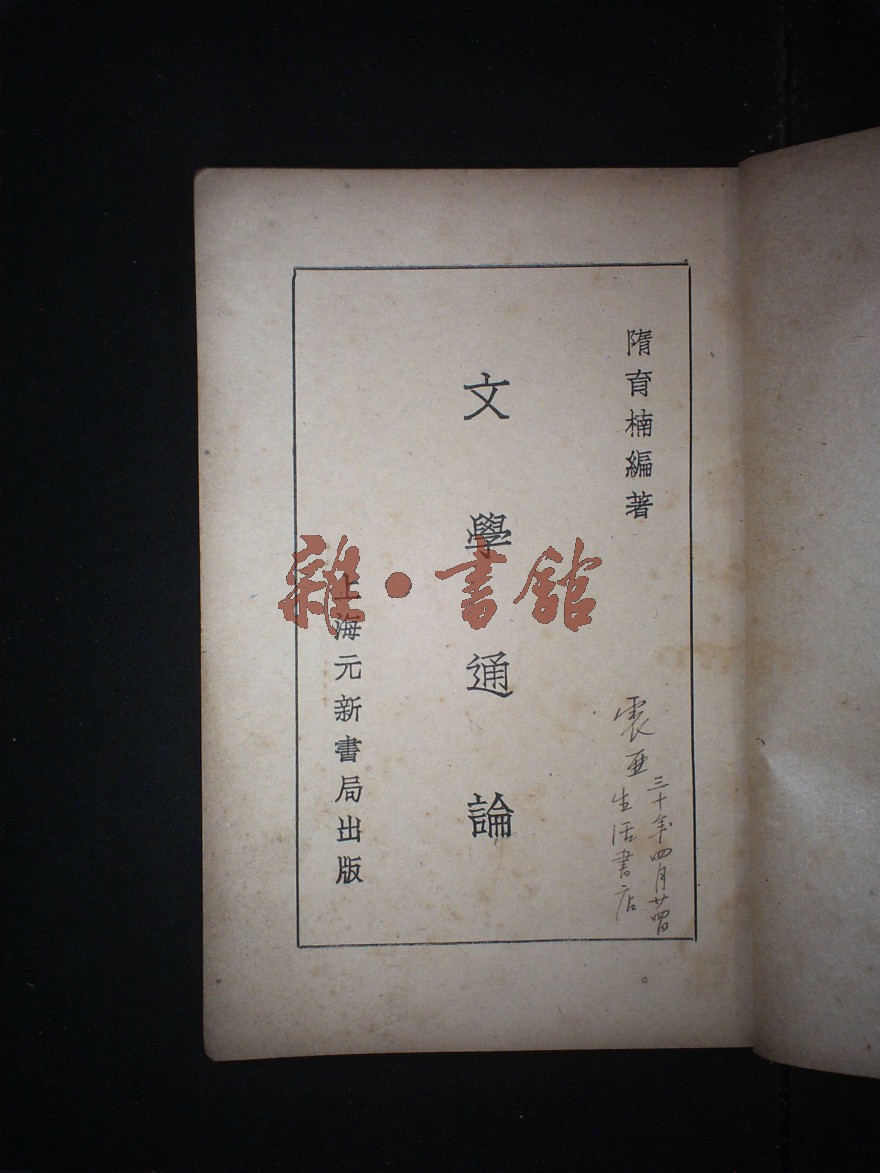 隋育楠編著
文學通論
上海元新書局出版
震亜生活書店
三十年四月廿四日
雜·書館